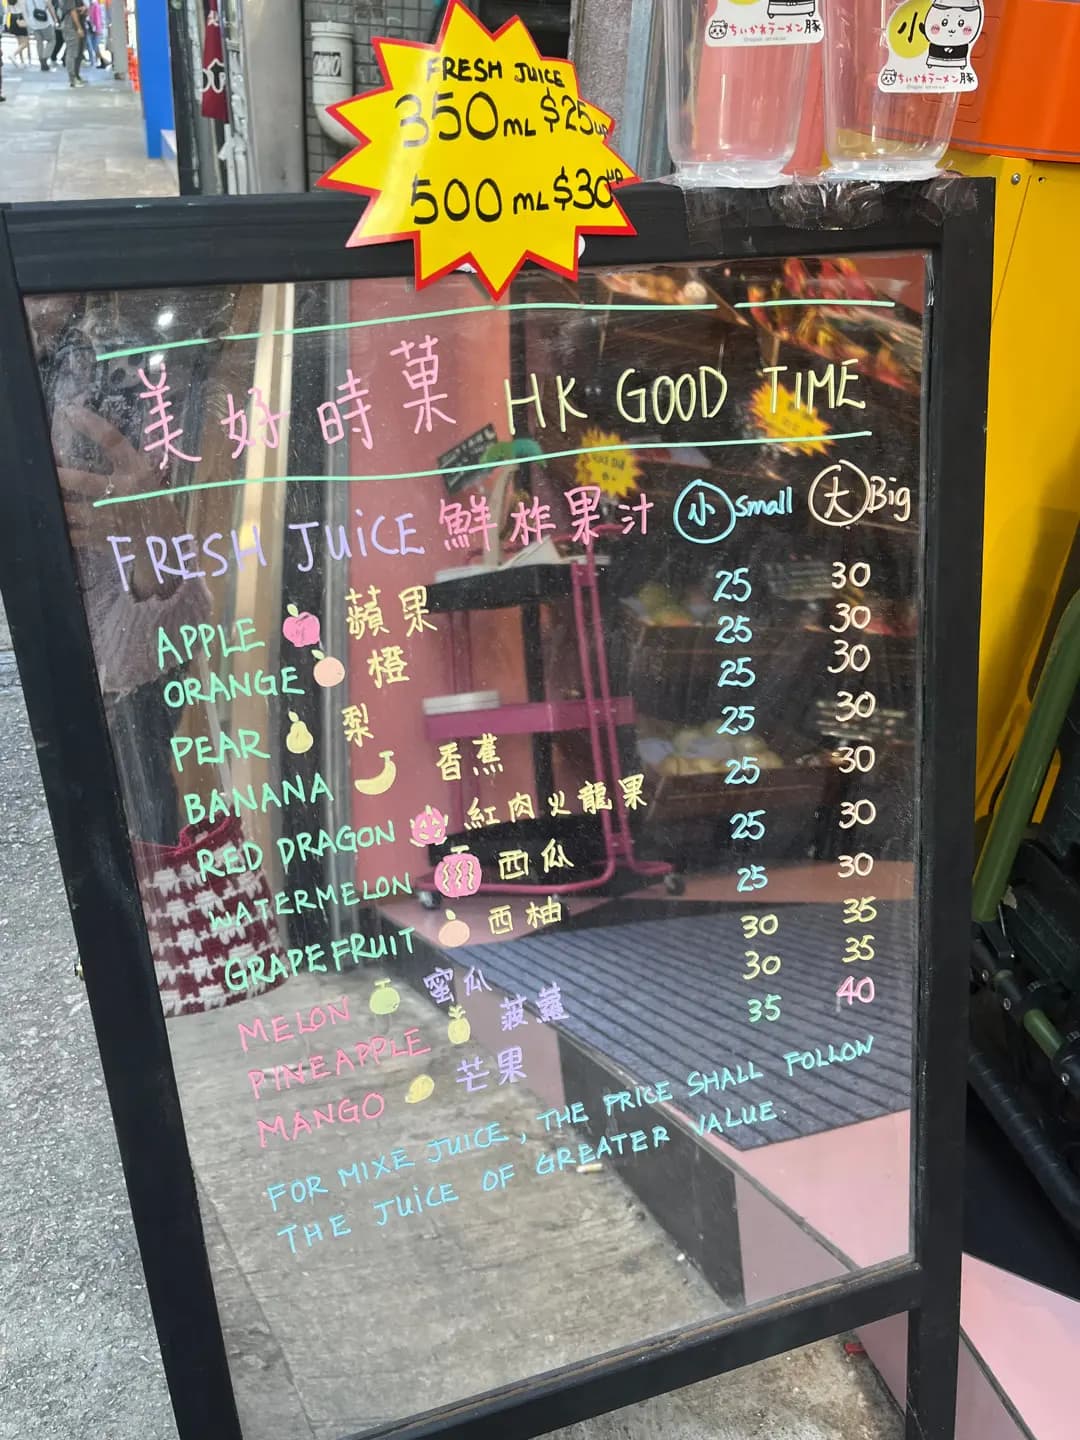 FRESH JUICE
350 ML $25 UP
500 ML $30 UP
小
ちいかわラーメン豚
ちいかわラーメン豚
美好時菓 HK GOOD TIME
FRESH JUICE 鮮柞果汁 小 Small 大 Big
APPLE 蘋果 25 30
ORANGE 橙 25 30
PEAR 梨 25 30
BANANA 香蕉 25 30
RED DRAGON 紅肉火龍果 25 30
WATERMELON 西瓜 25 30
GRAPEFRUIT 西柚 25 30
MELON 蜜瓜 30 35
PINEAPPLE 菠蘿 30 35
MANGO 芒果 35 40
FOR MIXE JUICE, THE PRICE SHALL FOLLOW
THE JUICE OF GREATER VALUE.